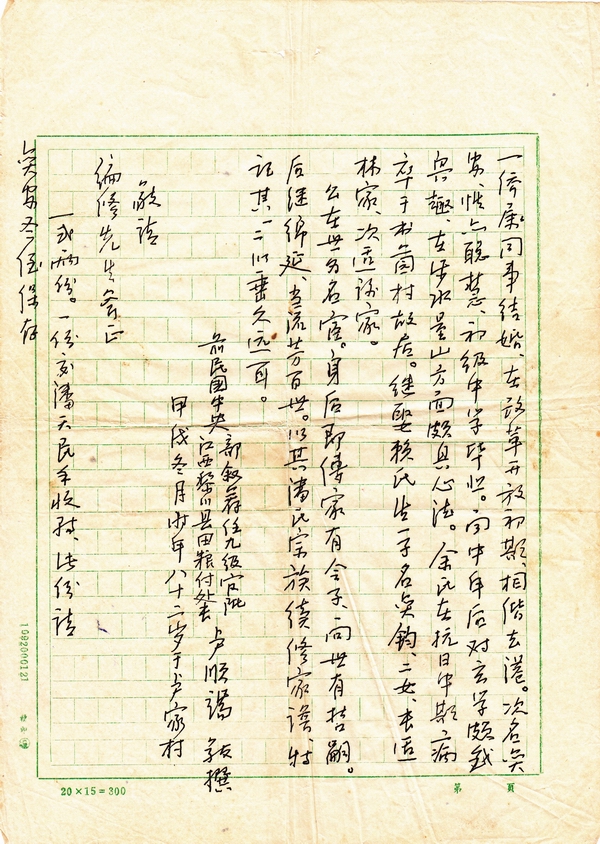 一侨属同事结婚、在改革开放初期、相偕去港。次名奂
安、性亦聪慧、初级中学毕业。向中年后对玄学颇感
兴趣、在涉水量山方面颇具心法。余氏在抗日中期病
卒于本茴村故居。继娶赖氏生一子名奂钧、二女、长适
林家、次适谢家。
公在世为名宦。身后即传家有令子、向世有哲嗣。
后继绵延、当流芳百世。以其潘氏宗族续修家谱、特
记其一二以垂久远耳。
前民国中央 部叙荐任九级官阶
江西黎川县田粮付处长 卢顺谒 敬撰
甲戌冬月时年八十二岁于卢家村
敬请
编修先生斧正
一式两份。一份交潘天民手收转、此份请
奂安冬侄保存
20×15=300
第 页
1092000121